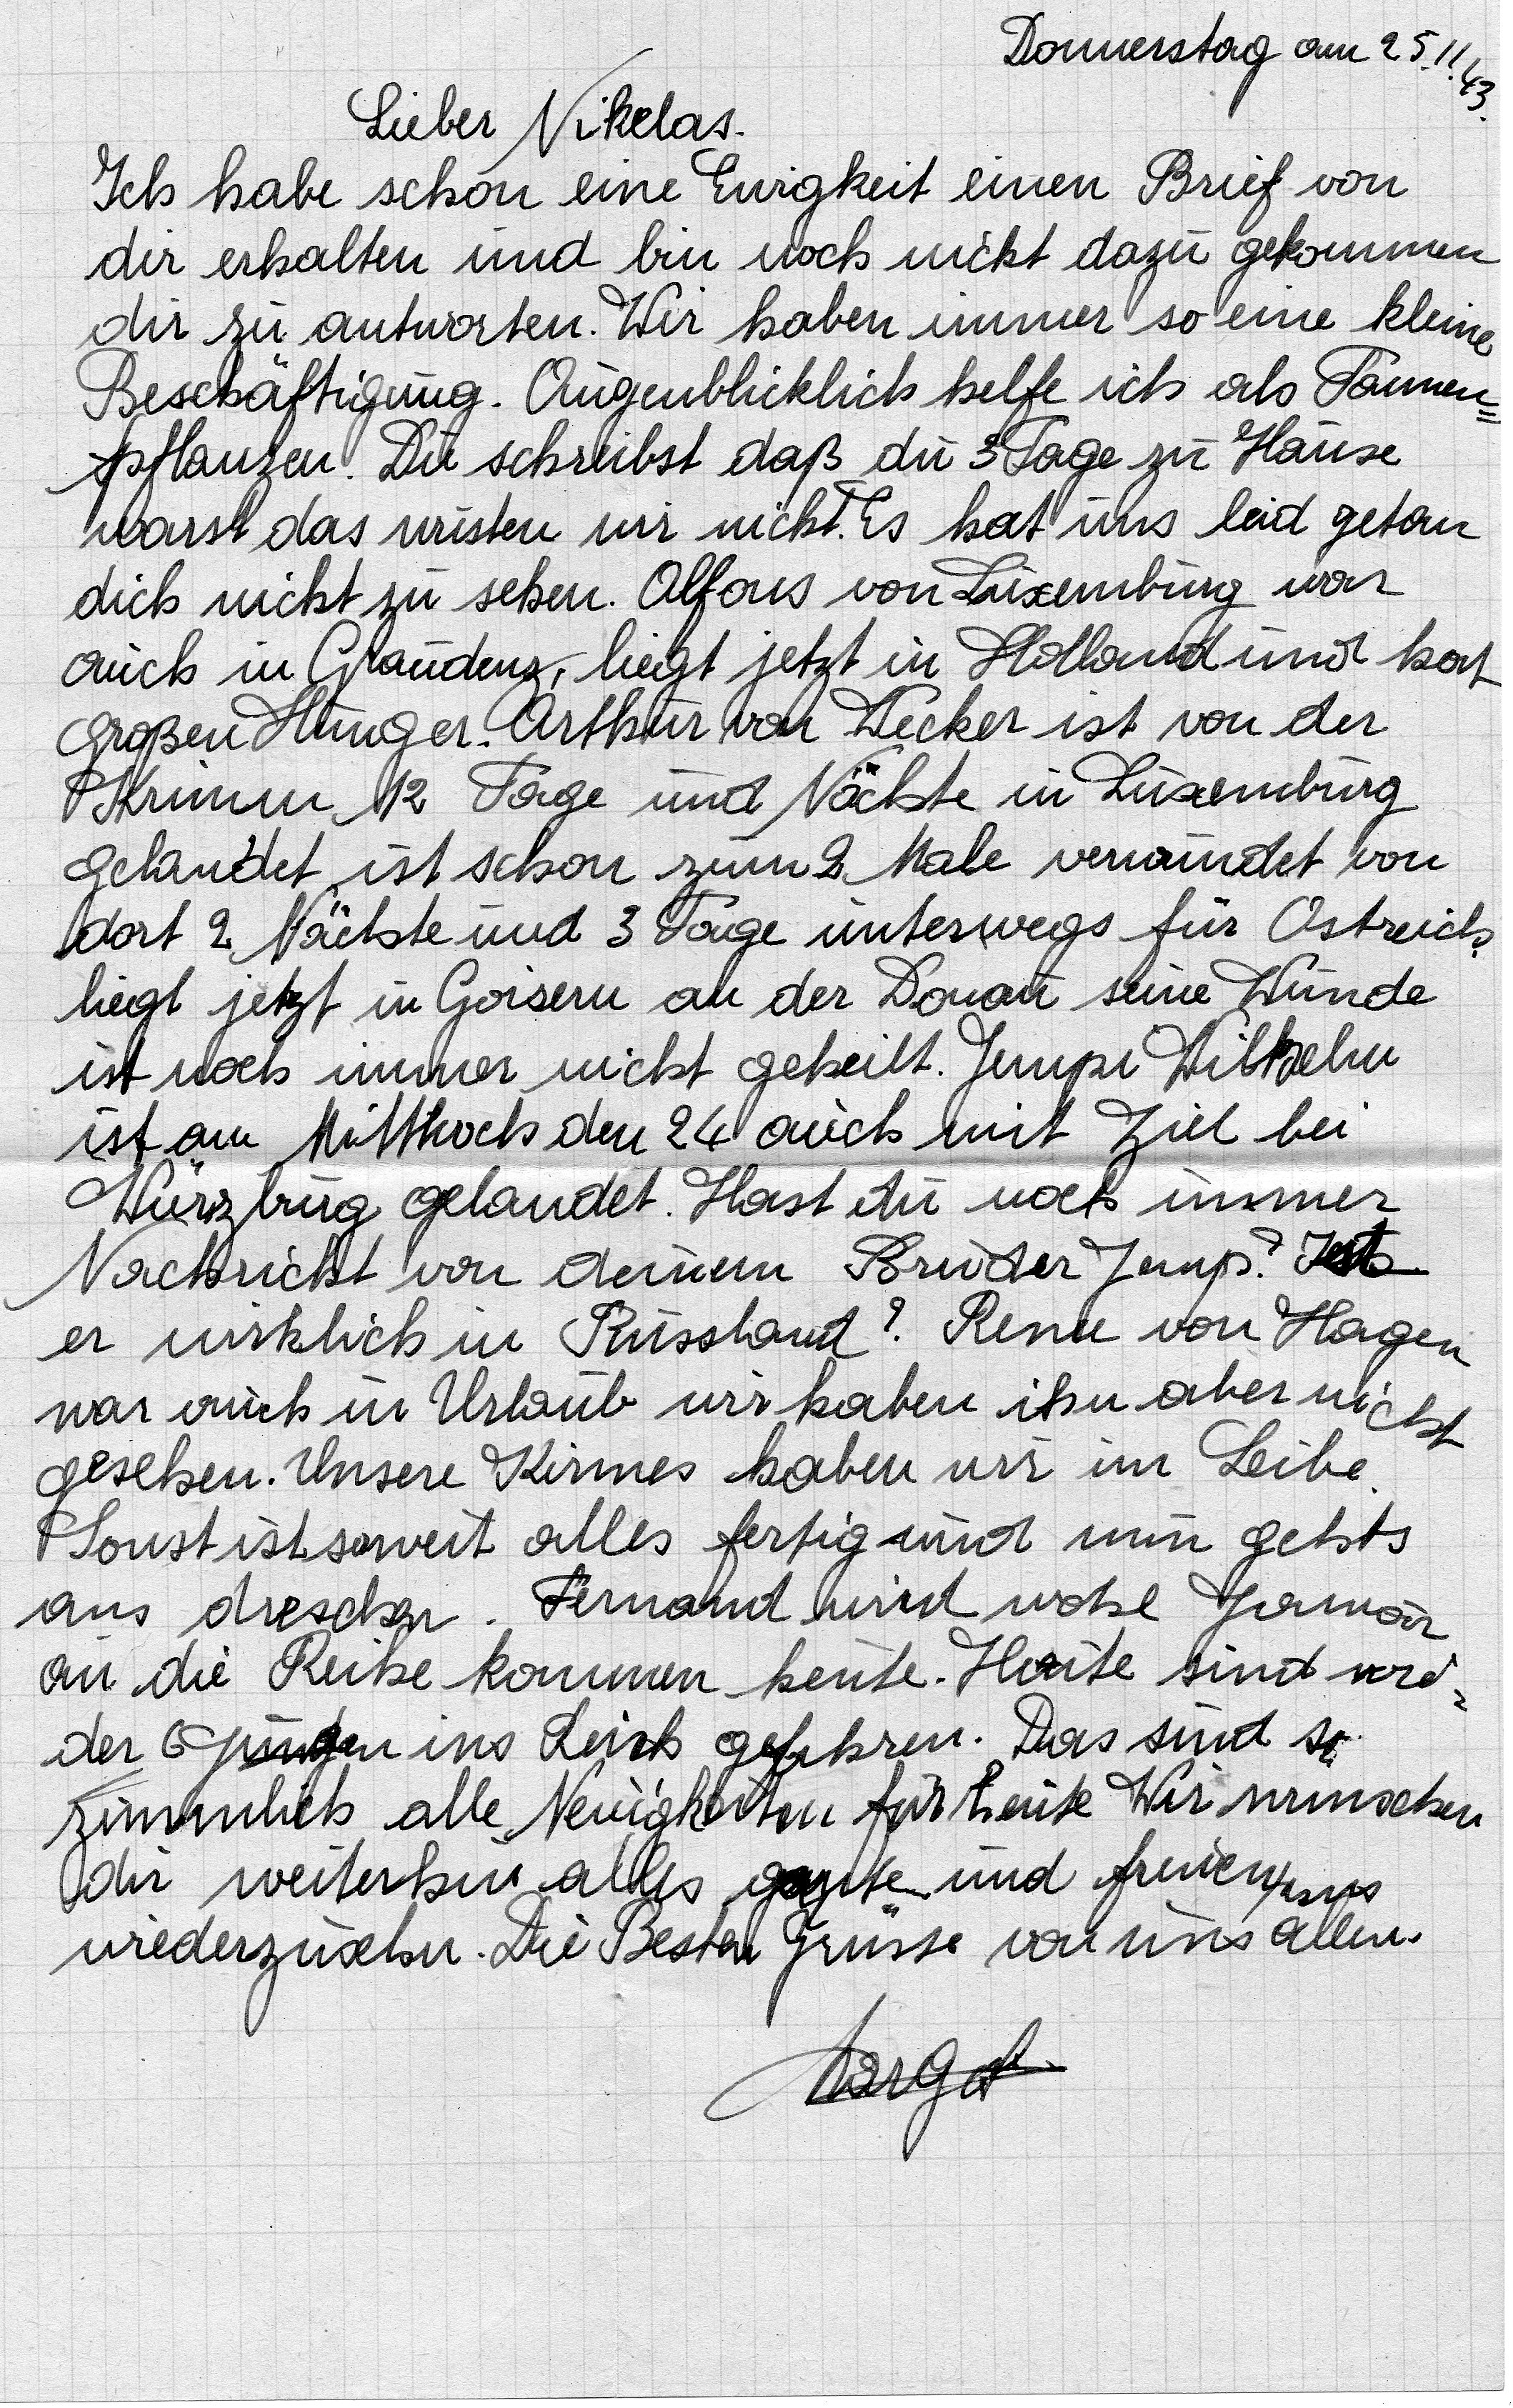 Donnerstag am 25.11.43.
Lieber Nikelas.
Ich habe schon eine Ewigkeit einen Brief von
dir erhalten und bin noch nicht dazu gekommen
dir zu antworten. Wir haben immer so eine kleine
Beschäftigung. Augenblicklich helfe ich als Tannen=
pflanzen. Du schreibst daß du 3 Tage zu Hause
warst das wusten wir nicht. Es hat uns leid getan
dich nicht zu sehen. Alfons von Luxemburg war
auch in Graudenz, liegt jetzt in Holland und hat
großen Hunger. Arthur von Wecker ist von der
Krimm 12 Tage und Nächte in Luxemburg
gelandet ist schon zum 2 Male verwundet von
dort 2 Nächte und 3 Tage unterwegs für Ostreich.
liegt jetzt in Goisern an der Donau seine Wunde
ist noch immer nicht geheilt. Jempi Wilhelm
ist am Mittwoch den 24 auch mit Ziel bei
Würzburg gelandet. Hast du noch immer
Nachricht von deinem Bruder Jemp? Ist
er wirklich in Russland? Rene von Hagen
war auch in Urlaub wir haben ihn aber nicht
gesehen. Unsere Kirmes haben wir im Leibe.
Sonst ist soweit alles fertig und nun gehts
ans dreschen. Fernand wird wohl Januar
an die Reihe kommen heute. Heute sind wie-
der 6 Jungen ins Reich gefahren. Das sind so
zimmlich alle Neuigkeiten für heute Wir wünschen
dir weiterhin alles gute und freuen uns
wiederzusehn. Die Besten Grüsse von uns allen.
Margot